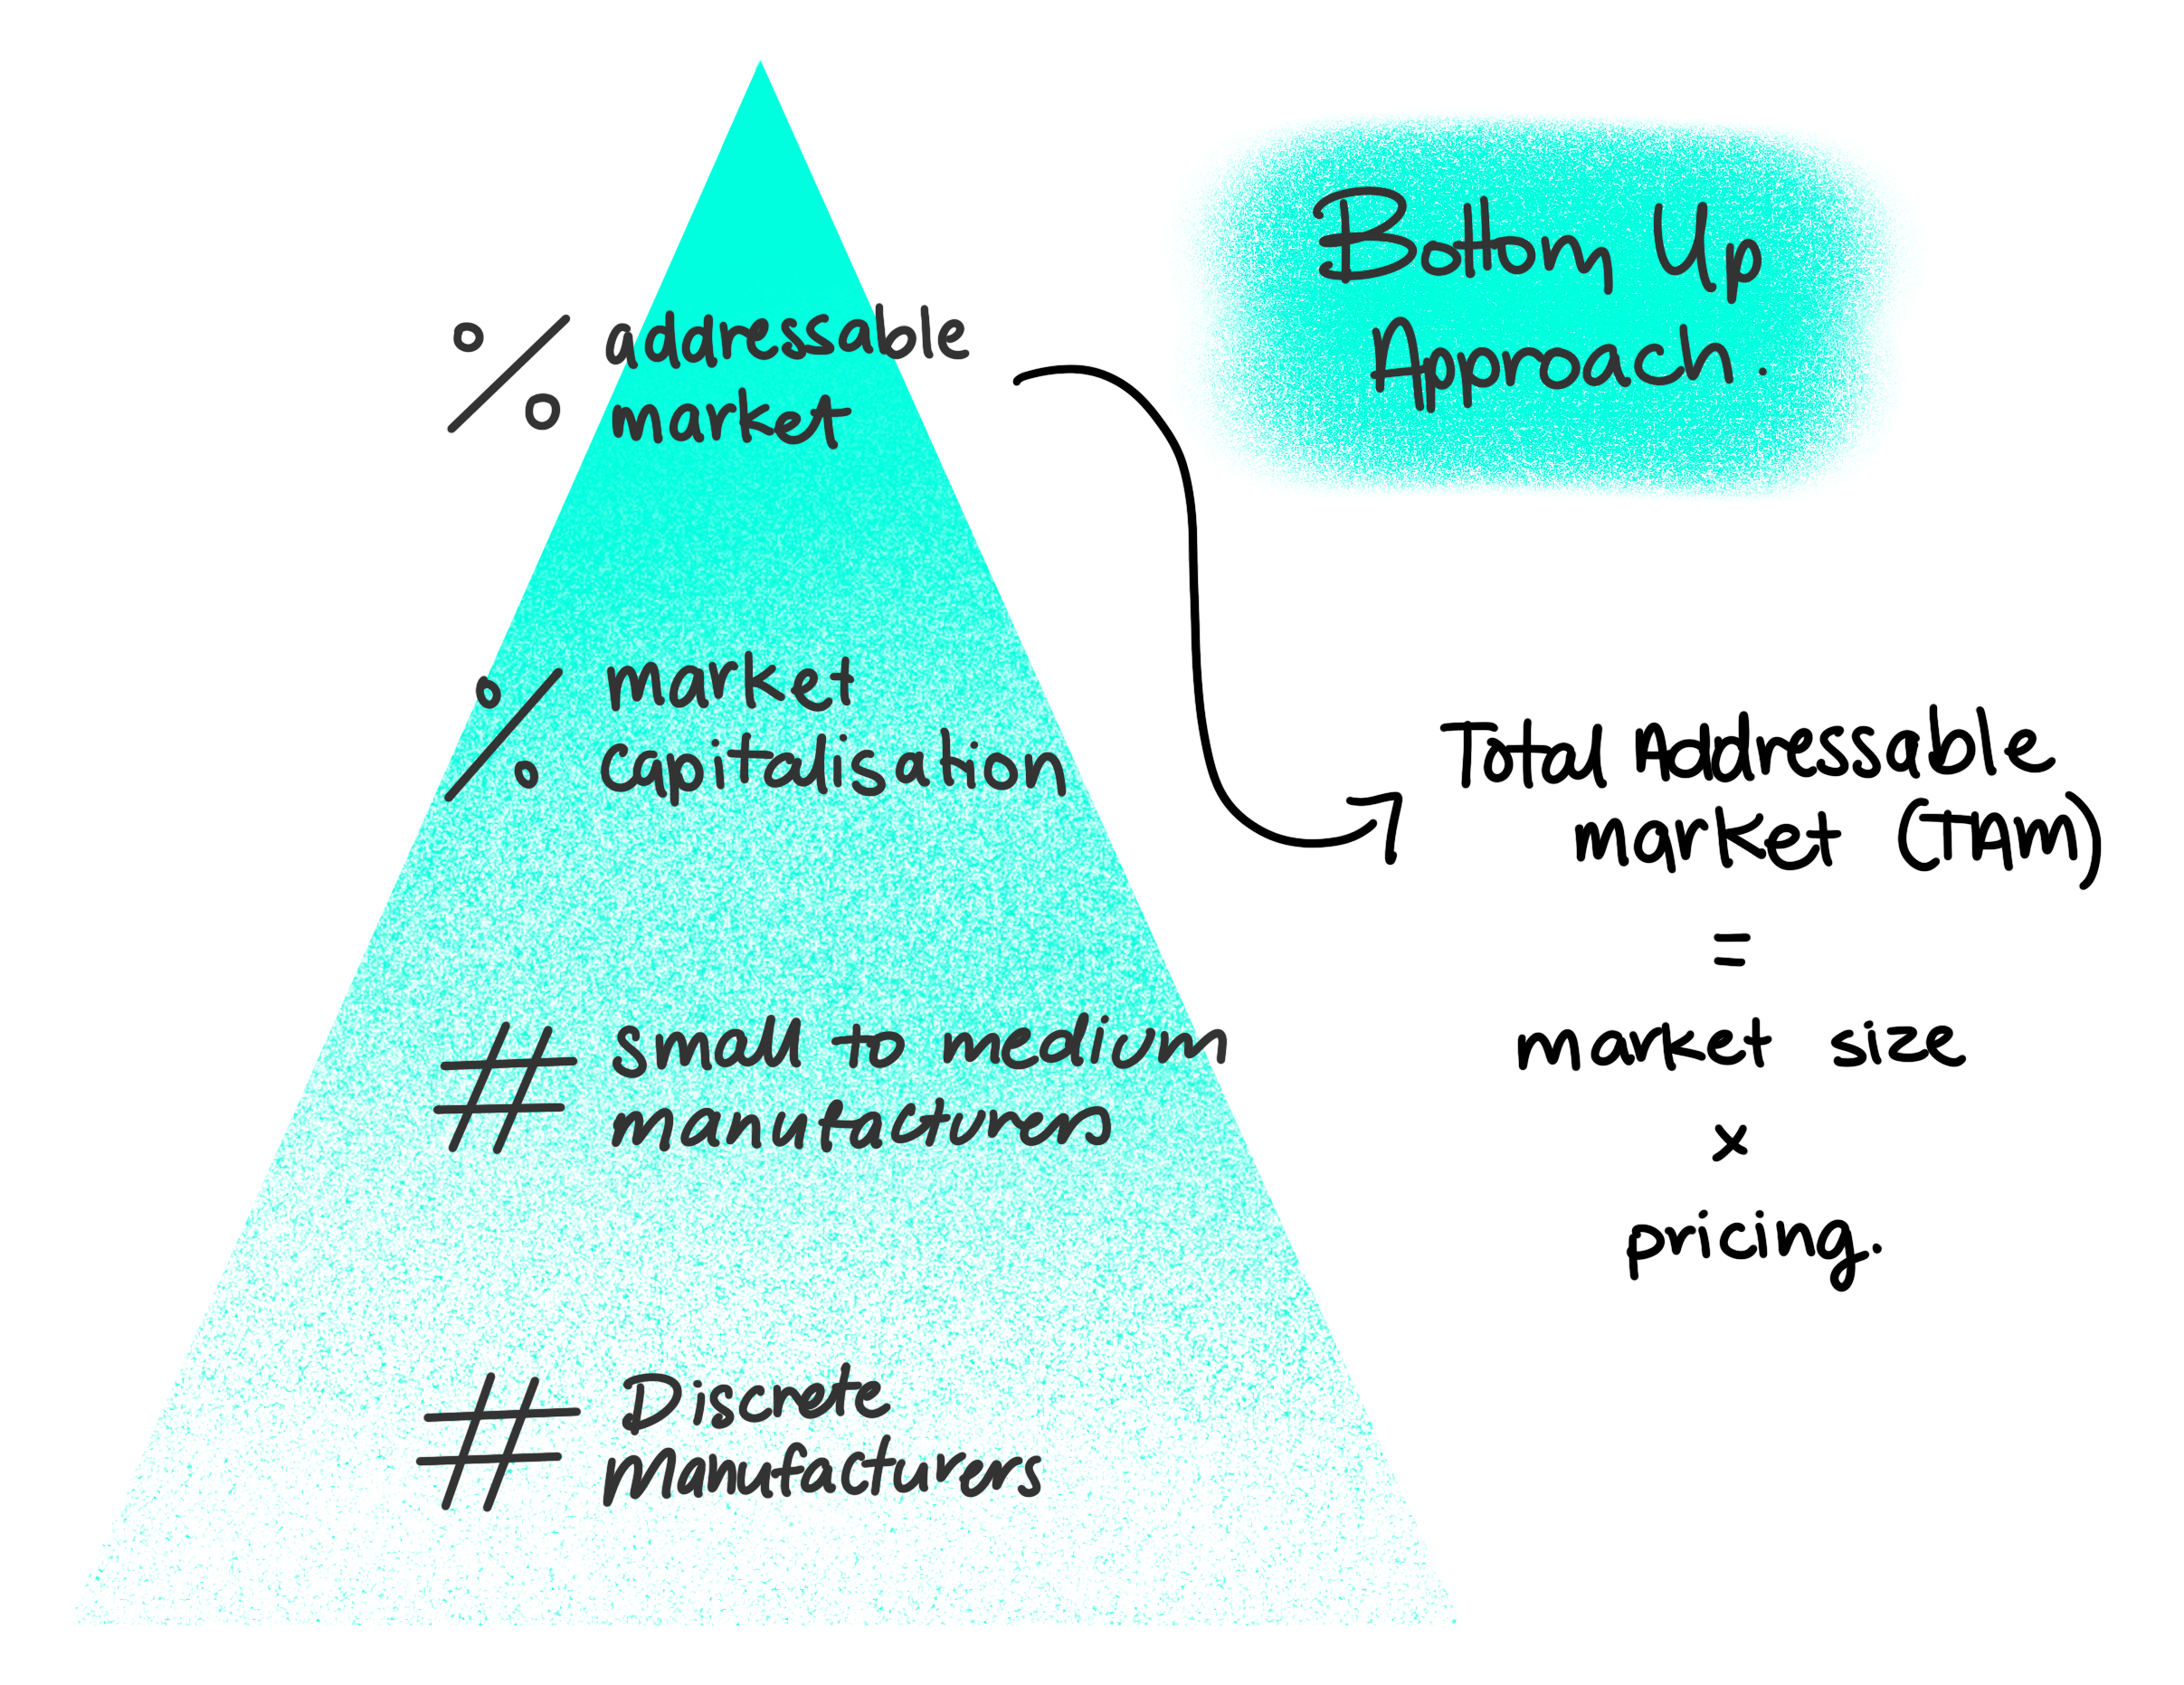 Bottom Up
Approach.
% addressable
market
% market
capitalisation
# small to medium
manufacturers
# Discrete
Manufacturers
Total Addressable
market (TAM)
=
market size
x
pricing.